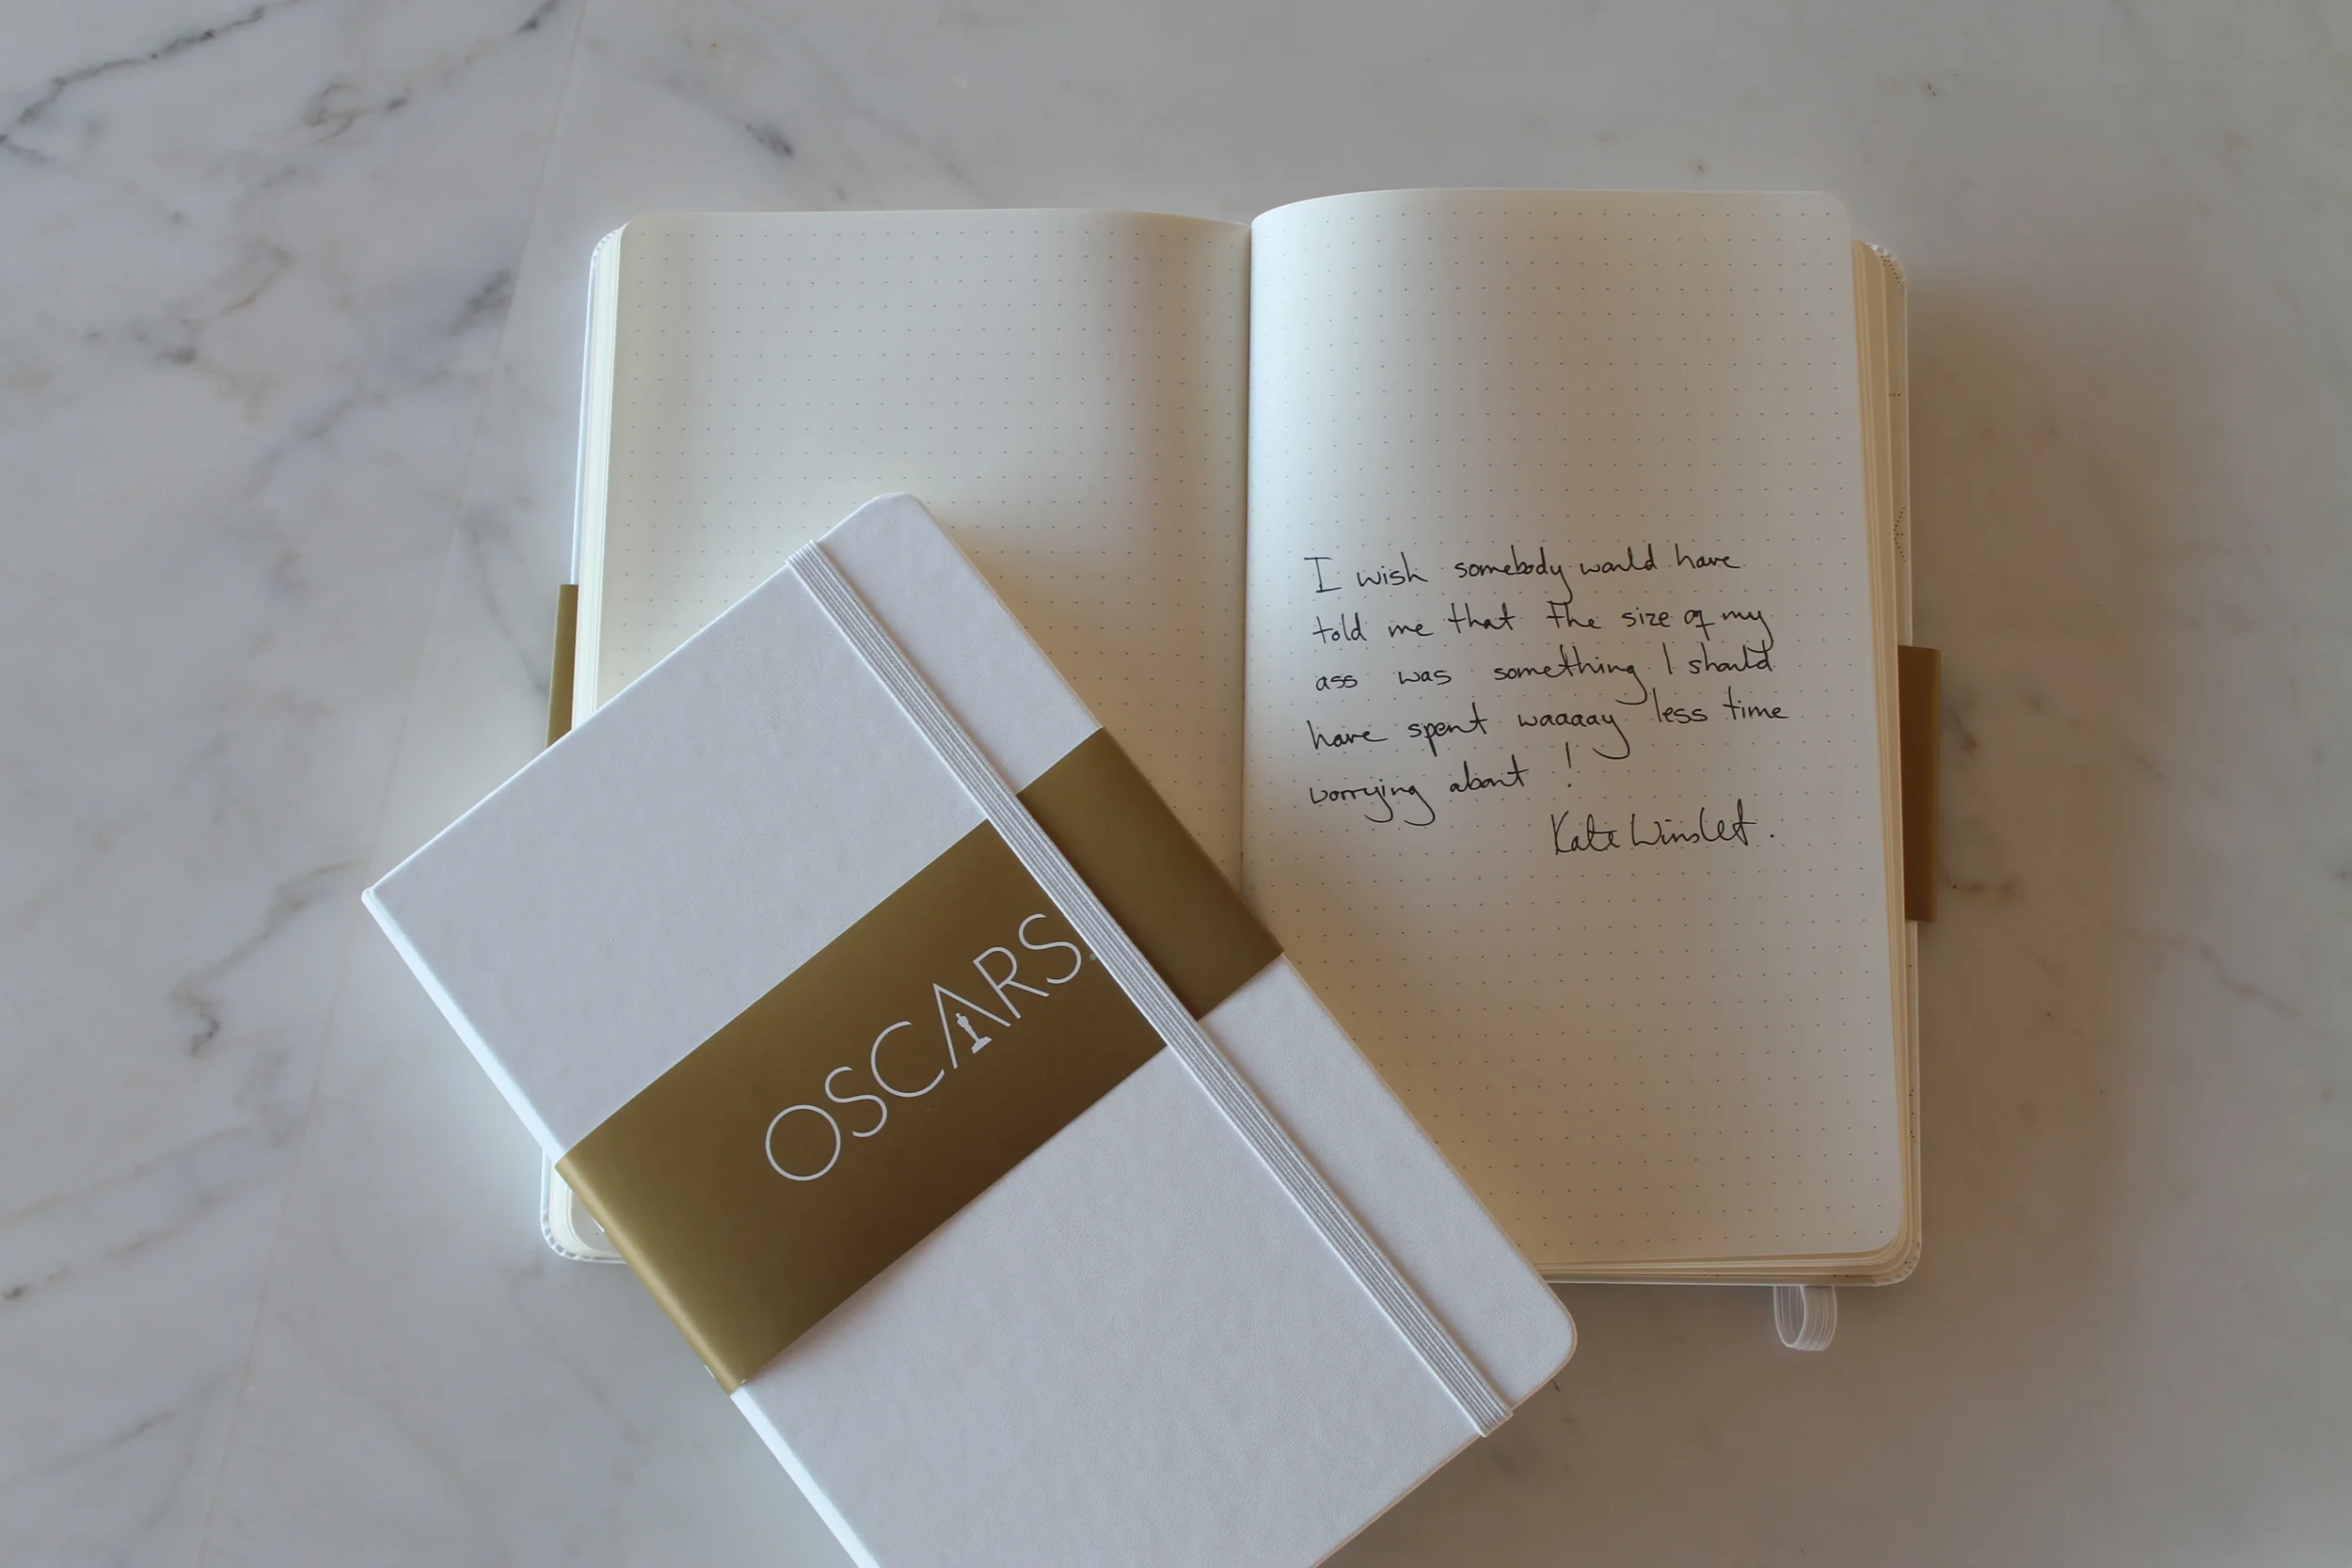 I wish somebody would have
told me that the size of my
ass was something I should
have spent waaaay less time
worrying about !
Kate Winslet.
OSCARS